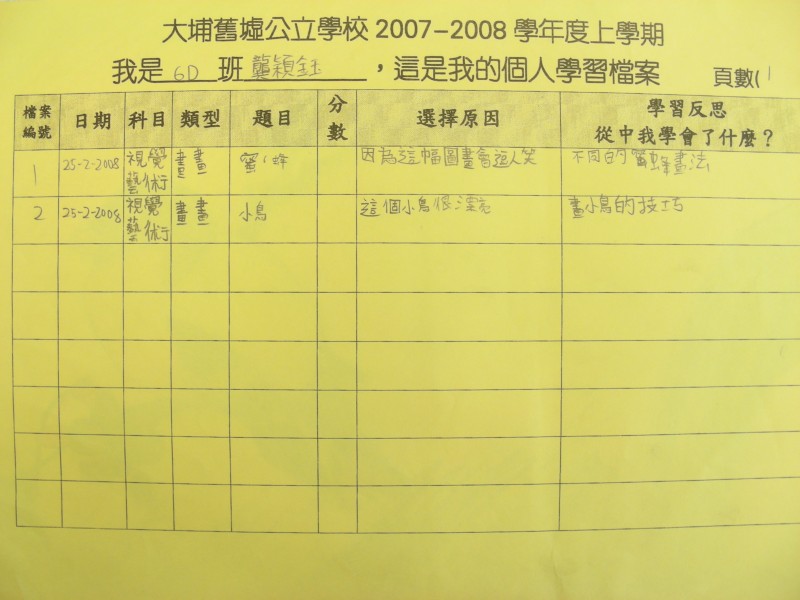 大埔舊墟公立學校 2007-2008 學年度上學期
我是 6D 班 龔穎鈺 ，這是我的個人學習檔案 頁數( 1
檔案編號 日期 科目 類型 題目 分數 選擇原因 學習反思 從中我學會了什麼？
1 25-2-2008 視覺藝術 畫畫 蜜蜂 因為這幅圖畫會逗人笑 不同的蜜蜂畫法
2 25-2-2008 視覺藝術 畫畫 小鳥 這個小鳥很漂亮 畫小鳥的技巧